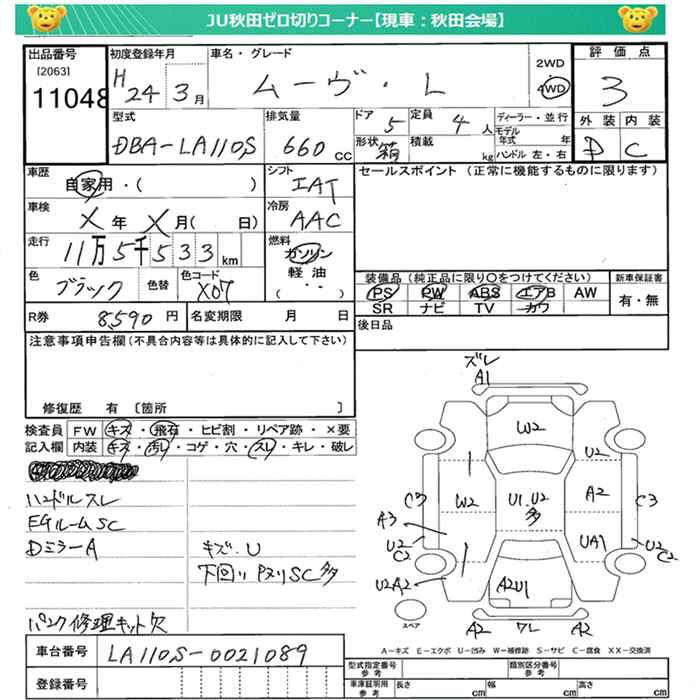 JU秋田ゼロ切りコーナー【現車：秋田会場】
出品番号 [2063] 11048
初度登録年月 H 24 3月
車名・グレード ムーヴ・L
2WD 4WD
評価点 3
外装 D 内装 C
型式 DBA-LA110S
排気量 660cc
ドア 5 定員 4人
形状 箱 積載 kg
ディーラー・並行
モデル年式 年
ハンドル 左・右
車歴 自家用・( )
シフト IAT
セールスポイント (正常に機能するものに限ります)
車検 X年 X月( 日)
冷房 AAC
走行 11万5千533km
燃料 ガソリン 軽油 (・・)
色 ブラック 色替 色コード X07
装備品 (純正品に限り〇をつけてください)
PS PW ABS エアB AW
SR ナビ TV カワ
新車保証書 有・無
R券 8590円 名変期限 月 日
後日品
注意事項申告欄 (不具合内容等は具体的に記入して下さい)
修復歴 有 [箇所 ]
検査員記入欄
FW キズ・飛石・ヒビ割・リペア跡・×要
内装 キズ・汚レ・コゲ・穴・スレ・キレ・破レ
ハンドルスレ
Eグルーム SC
Dミラー A
キズ.U
下回り PヌリSC多
パンク修理キット欠
ズレ
A1
W2
U2
W2
U1.U2
多
A2
C3
C3
A3
U2
C2
UA1
U2
C2
U2A2
A2U1
スペア
A2 ワレ A2
A-キズ E-エクボ U-凹み W-補修跡 S-サビ C-腐食 XX-交換済
車台番号 LA110S-0021089
登録番号
型式指定番号 参考 類別区分番号 参考
車庫証明用 参考 長さ cm 幅 cm 高さ cm